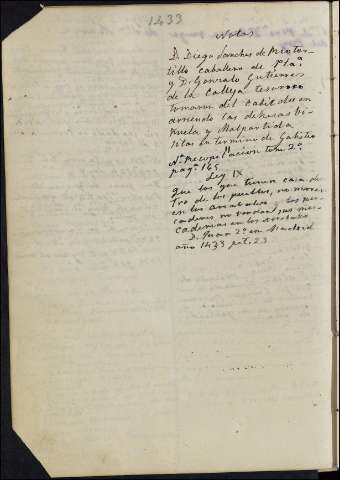 1433
Notas
D. Diego Sanchez de
tillo caballero de Plaª
y D. Gonzalo Gutierrez
de la Calleja tesorero
tomaron del cabildo en
arriendo las dehesas
y Malpartida
sitas en termino de
Nª Recopilacion tom. 2º
pagª 165
Ley IX
Que los que tienen casa den-
tro de los pueblos, no moren
en los arrabales y los mer-
caderes no vendan sus mer-
caderias en los arrabales
D. Juan 2º en Madrid
año 1433 pet. 23